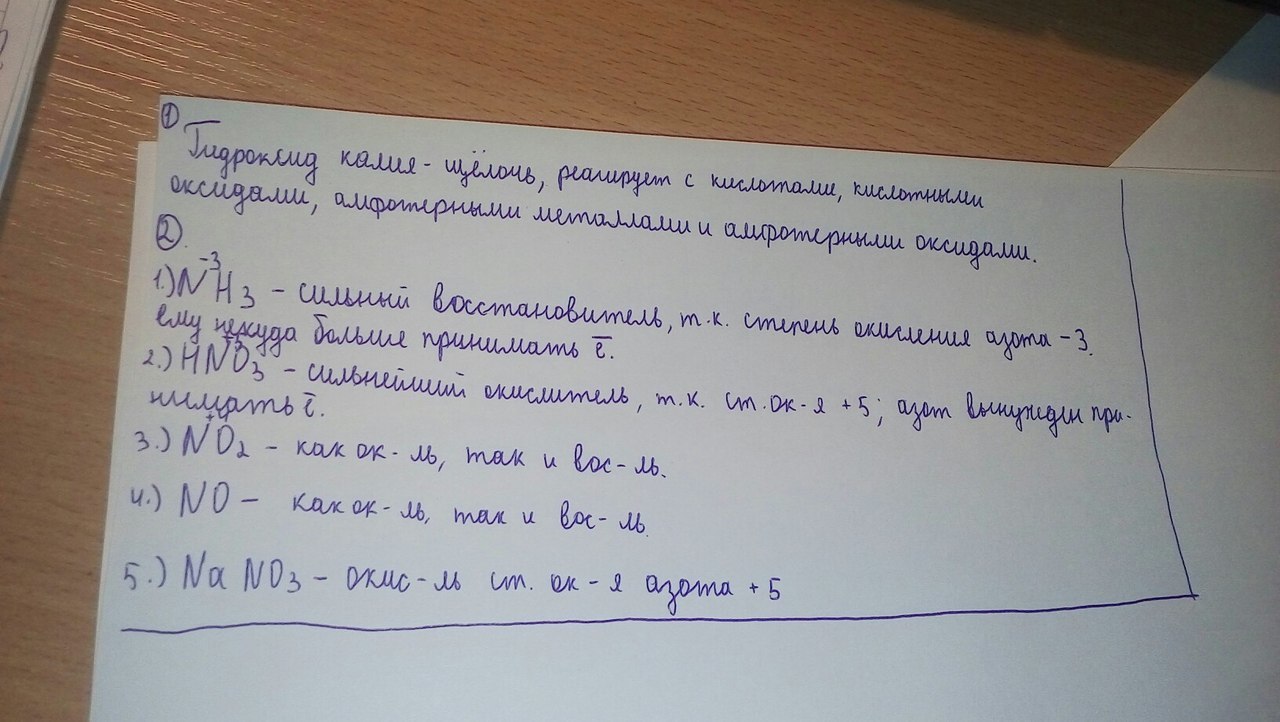 ①
Гидроксид калия - щёлочь, реагирует с кислотами, кислотными
оксидами, амфотерными металлами и амфотерными оксидами.
②.
1.) N⁻³H₃ - сильный восстановитель, т.к. степень окисления азота -3.
ему некуда больше принимать ē.
2.) HN⁺⁵O₃ - сильнейший окислитель, т.к. ст.ок-я +5; азот вынужден при-
нимать ē.
3.) NO₂ - как ок-ль, так и вос-ль.
4.) NO - как ок-ль, так и вос-ль.
5.) NaNO₃ - окис-ль ст. ок-я азота +5